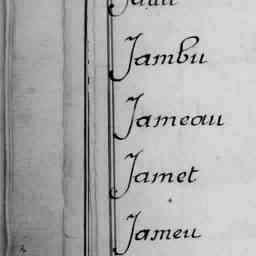 Jambu
Jameau
Jamet
Jameu